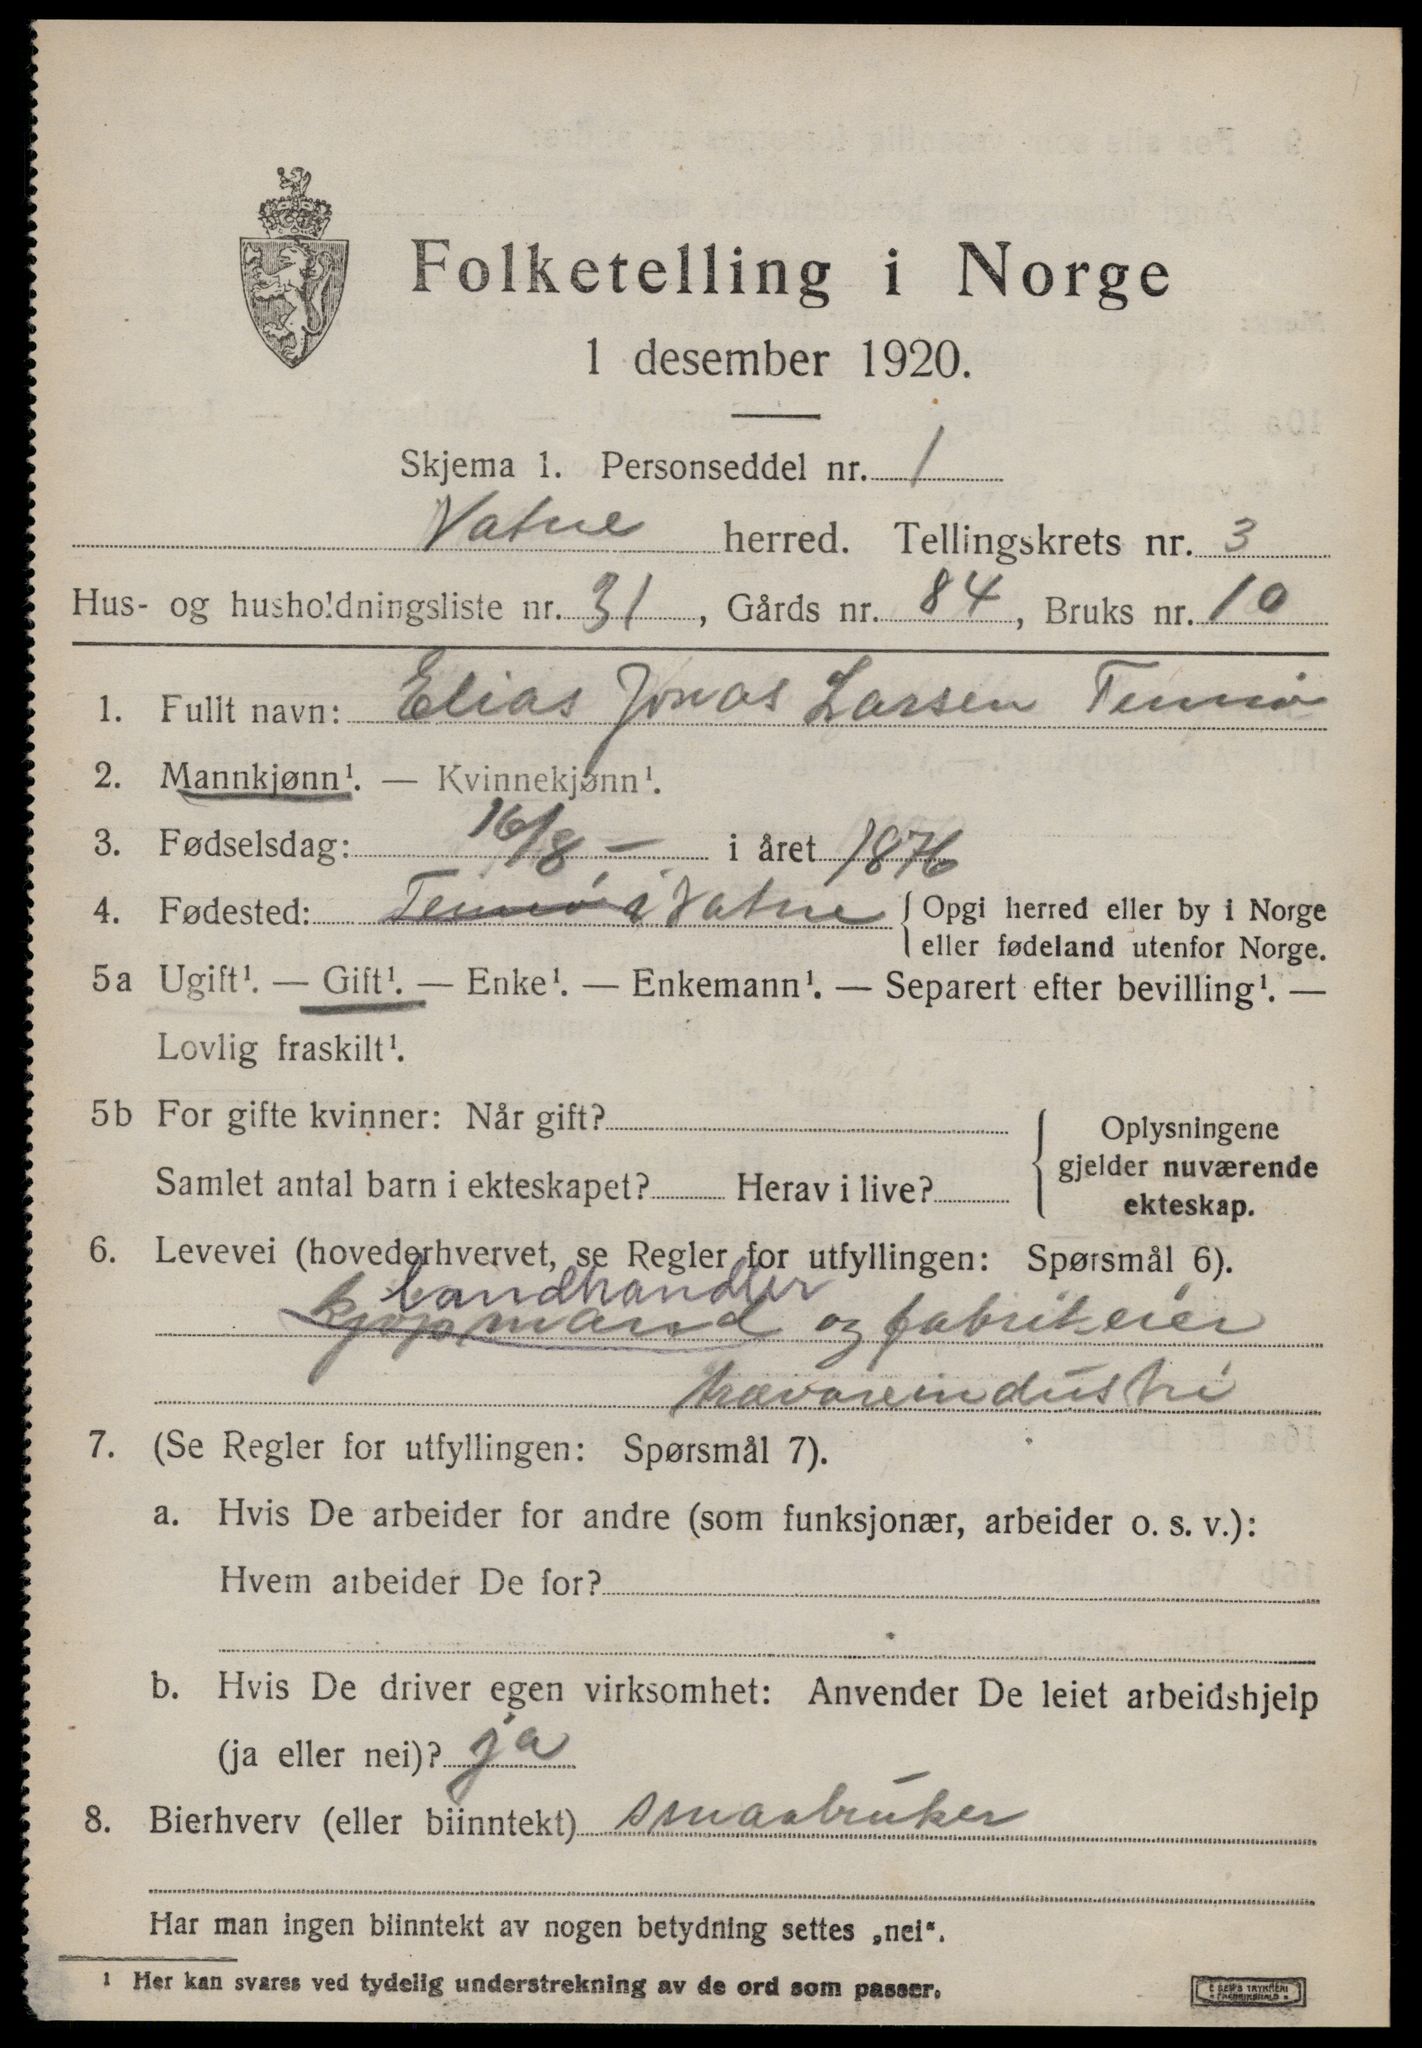 Folketelling i Norge
1 desember 1920.
Skjema 1. Personseddel nr. 1
Vatne herred. Tellingskrets nr. 3
Hus- og husholdningsliste nr. 31, Gårds nr. 84, Bruks nr. 10
1. Fullt navn: Elias Jonas Larsen Tennø
2. Mannkjønn¹. — Kvinnekjønn¹.
3. Fødselsdag: 16/8 – i året 1876
4. Fødested: Tennø i Vatne { Opgi herred eller by i Norge
eller fødeland utenfor Norge.
5a Ugift¹. — Gift¹. — Enke¹. — Enkemann¹. — Separert efter bevilling¹. —
Lovlig fraskilt¹.
5b For gifte kvinner: Når gift?
Samlet antal barn i ekteskapet? Herav i live?
Oplysningene
gjelder nuværende
ekteskap.
6. Levevei (hovederhvervet, se Regler for utfyllingen: Spørsmål 6).
landhandler
kjøpmand og fabrikeier
trævareindustri
7. (Se Regler for utfyllingen: Spørsmål 7).
a. Hvis De arbeider for andre (som funksjonær, arbeider o. s. v.):
Hvem arbeider De for?
b. Hvis De driver egen virksomhet: Anvender De leiet arbeidshjelp
(ja eller nei)? ja
8. Bierhverv (eller biinntekt) smaabruker
Har man ingen biinntekt av nogen betydning settes „nei“.
¹ Her kan svares ved tydelig understrekning av de ord som passer.